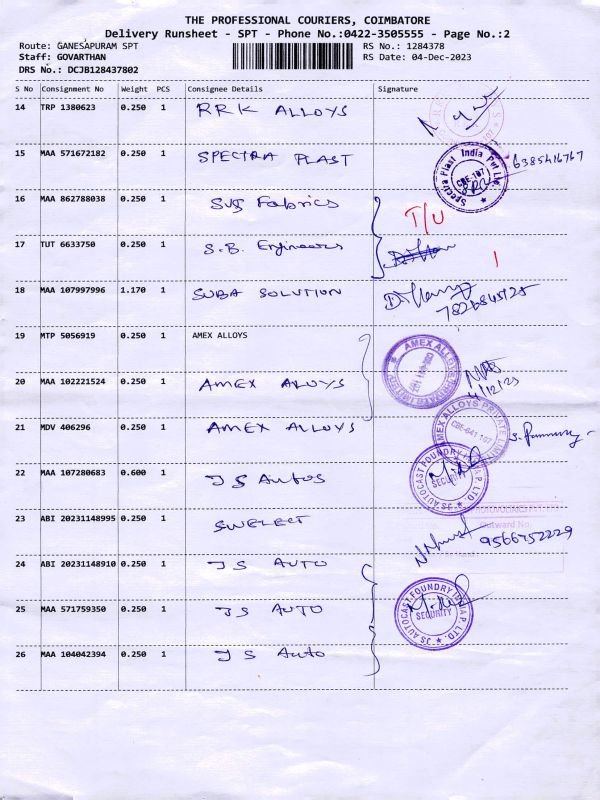 THE PROFESSIONAL COURIERS, COIMBATORE
Delivery Runsheet - SPT - Phone No.:0422-3505555 - Page No.:2
Route: GANESAPURAM SPT RS No.: 1284378
Staff: GOVARTHAN RS Date: 04-Dec-2023
DRS No.: DCJB128437802
S No Consignment No Weight PCS Consignee Details Signature
14 TRP 1380623 0.250 1 RRK ALLOYS
15 MAA 571672182 0.250 1 SPECTRA PLAST
Spectra Plast India Pvt Ltd. CBE-107
16 MAA 862788038 0.250 1 Fabrics T/U
17 TUT 6633750 0.250 1 S.B. Engineers
18 MAA 107997996 1.170 1 SUBA SOLUTION
19 MTP 5056919 0.250 1 AMEX ALLOYS
20 MAA 102221524 0.250 1 AMEX ALLOYS
4/12/23
21 MDV 406296 0.250 1 AMEX ALLOYS
AMEX ALLOYS PRIVATE LIMITED CBE-641 107
22 MAA 107280683 0.600 1 JS Autos
JS AUTOCAST FOUNDRY INDIA P. LTD. SECURITY
23 ABI 20231148995 0.250 1 SWELECT
Outward No.
9566752229
24 ABI 20231148910 0.250 1 JS AUTO
25 MAA 571759350 0.250 1 JS AUTO
JS AUTOCAST FOUNDRY INDIA P. LTD. SECURITY
26 MAA 104042394 0.250 1 JS Auto